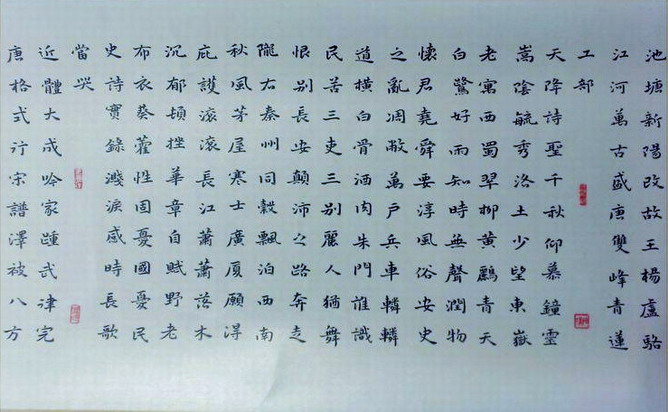 池塘新陽改故王楊盧駱
江河萬古盛唐雙峰青蓮
工部
天降詩聖千秋仰慕鐘靈
嵩陰毓秀洛土少望東嶽
老寓西蜀翠柳黃鸝青天
白鷺好雨知時無聲潤物
懷君堯舜要淳風俗安史
之亂凋敝萬戶兵車轔轔
道橫白骨酒肉朱門誰識
民苦三吏三別麗人猶舞
恨別長安顛沛之路奔走
隴右秦州同穀飄泊西南
秋風茅屋寒士廣廈願得
庇護滾滾長江蕭蕭落木
沉郁頓挫華章自賦野老
布衣葵藿性固憂國憂民
史詩實錄濺淚感時長歌
當哭
近體大成吟家踵武律完
唐格式行宋譜澤被八方